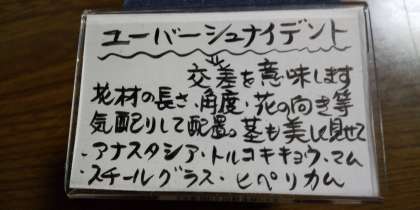 ユーバーシュナイデント
⇓
交差を意味します
花材の長さ、角度・花の向き等
気配りして配置。茎も美しく見せて
・アナスタシア・トルコキキョウ・マム
・スチールグラス・ヒペリカム